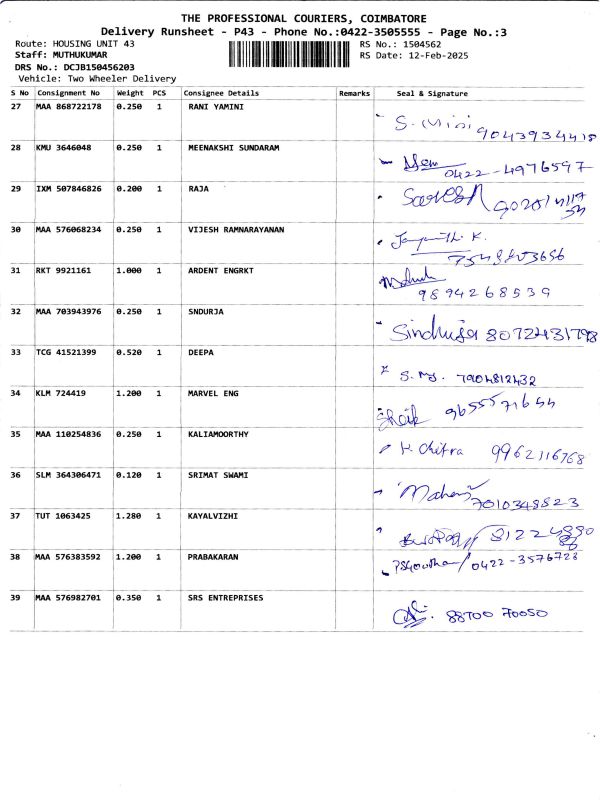 THE PROFESSIONAL COURIERS, COIMBATORE
Delivery Runsheet - P43 - Phone No.:0422-3505555 - Page No.:3
Route: HOUSING UNIT 43 RS No.: 1504562
Staff: MUTHUKUMAR RS Date: 12-Feb-2025
DRS No.: DCJB150456203
Vehicle: Two Wheeler Delivery
S No Consignment No Weight PCS Consignee Details Remarks Seal & Signature
27 MAA 868722178 0.250 1 RANI YAMINI
S. Mini 9043934418
28 KMU 3646048 0.250 1 MEENAKSHI SUNDARAM
0422-4976597
29 IXM 507846826 0.200 1 RAJA
30 MAA 576068234 0.250 1 VIJESH RAMNARAYANAN
31 RKT 9921161 1.000 1 ARDENT ENGRKT
9894268539
32 MAA 703943976 0.250 1 SNDURJA
Sindhuja 8072431798
33 TCG 41521399 0.520 1 DEEPA
S. My. 7904812432
34 KLM 724419 1.200 1 MARVEL ENG
Sheik 9655571644
35 MAA 110254836 0.250 1 KALIAMOORTHY
K. Chitra 9962116768
36 SLM 364306471 0.120 1 SRIMAT SWAMI
7010348823
37 TUT 1063425 1.280 1 KAYALVIZHI
38 MAA 576383592 1.200 1 PRABAKARAN
0422-3576728
39 MAA 576982701 0.350 1 SRS ENTREPRISES
88700 70050